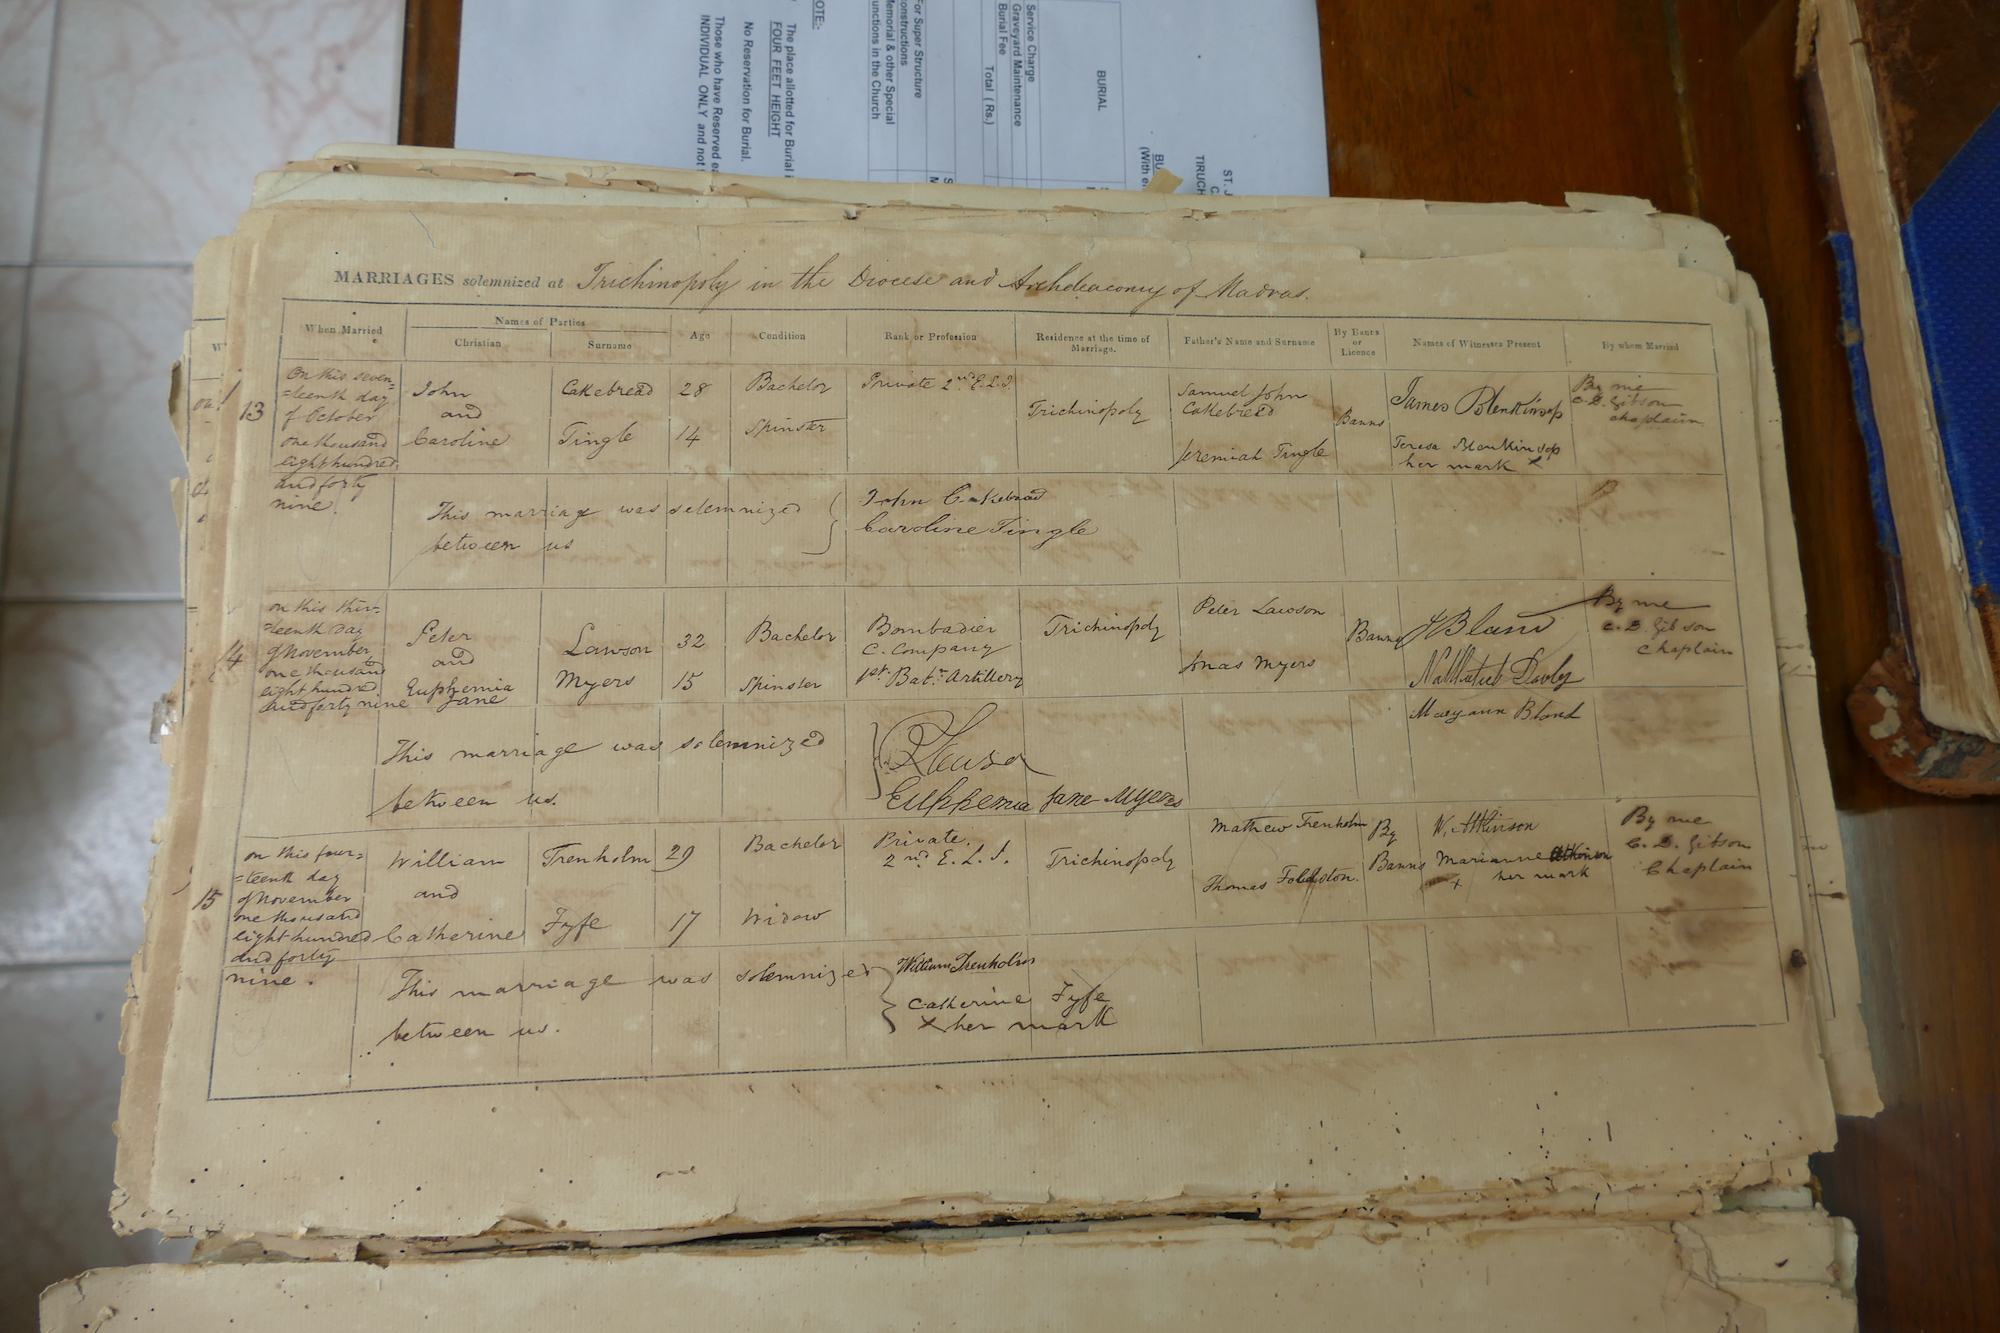 MARRIAGES solemnized at Trichinopoly in the Diocese and Archdeaconry of Madras.
When Married
Names of Parties
Christian
Surname
Age
Condition
Rank or Profession
Residence at the time of
Marriage.
Father's Name and Surname
By Banns
or
Licence
Names of Witnesses Present
By whom Married
13
On this seven=
=teenth day
of October
one thousand
eight hundred
and forty
nine.
John
and
Caroline
Cakebread
Tingle
28
14
Bachelor
Spinster
Private 2nd E.L.I.
Trichinopoly
Samuel John
Cakebread
Jeremiah Tingle
Banns
James Blenkinsop
Teresa Blenkinsop
her mark x
By me
C. D. Gibson
chaplain
This marriage was solemnized
between us
John Cakebread
Caroline Tingle
4
on this thir=
=teenth Day
of November
one thousand
eight hundred
and forty nine
Peter
and
Euphemia
Jane
Lawson
Myers
32
15
Bachelor
Spinster
Bombadier
C. Company
1st Batn Artillery
Trichinopoly
Peter Lawson
Jonas Myers
Banns
Maryann Bland
By me
C. D. Gibson
Chaplain
This marriage was solemnized
between us.
Euphemia Jane Myers
15
on this four=
=teenth day
of November
one thousand
eight hundred
and forty
nine.
William
and
Catherine
Trenholm
Fyfe
29
17
Bachelor
Widow
Private
2nd E. L. I.
Trichinopoly
Mathew Trenholm
Thomas
By
Banns
W. Atkinson
Marianne Atkinson
x her mark
By me
C. D. Gibson
Chaplain
This marriage was solemnized
between us.
William Trenholm
Catherine Fyfe
x her mark
BURIAL
Service Charge
Graveyard Maintenance
Burial Fee
Total (Rs.)
For Super Structure
constructions
Memorial & other Special
Functions in the Church
NOTE:-
The place allotted for Burial i
FOUR FEET HEIGHT
No Reservation for Burial.
Those who have Reserved ea
INDIVIDUAL ONLY and not
ST. J
TIRUCH
BU
(With e